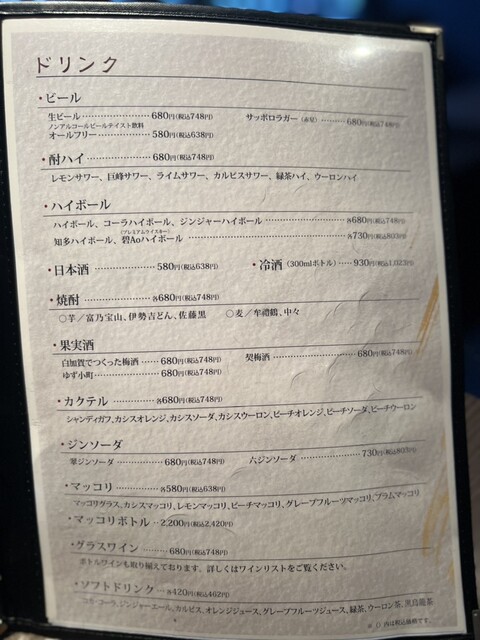 ドリンク
・ビール
生ビール 680円(税込748円) サッポロラガー(赤星) 680円(税込748円)
ノンアルコールビールテイスト飲料
オールフリー 580円(税込638円)
・酎ハイ 680円(税込748円)
レモンサワー、巨峰サワー、ライムサワー、カルピスサワー、緑茶ハイ、ウーロンハイ
・ハイボール
ハイボール、コーラハイボール、ジンジャーハイボール 各680円(税込748円)
(プレミアムウイスキー)
知多ハイボール、碧Aoハイボール 各730円(税込803円)
・日本酒 580円(税込638円) ・冷酒(300mlボトル) 930円(税込1,023円)
・焼酎 各680円(税込748円)
○芋/富乃宝山、伊勢吉どん、佐藤黒 ○麦/牟禮鶴、中々
・果実酒
白加賀でつくった梅酒 680円(税込748円) 契梅酒 680円(税込748円)
ゆず小町 680円(税込748円)
・カクテル 各680円(税込748円)
シャンディガフ、カシスオレンジ、カシスソーダ、カシスウーロン、ピーチオレンジ、ピーチソーダ、ピーチウーロン
・ジンソーダ
翠ジンソーダ 680円(税込748円) 六ジンソーダ 730円(税込803円)
・マッコリ 各580円(税込638円)
マッコリグラス、カシスマッコリ、レモンマッコリ、ピーチマッコリ、グレープフルーツマッコリ、プラムマッコリ
・マッコリボトル 2,200円(税込2,420円)
・グラスワイン 680円(税込748円)
ボトルワインも取り揃えております。詳しくはワインリストをご覧ください。
・ソフトドリンク 各420円(税込462円)
コカ・コーラ、ジンジャーエール、カルピス、オレンジジュース、グレープフルーツジュース、緑茶、ウーロン茶、黒烏龍茶
※()内は税込価格です。